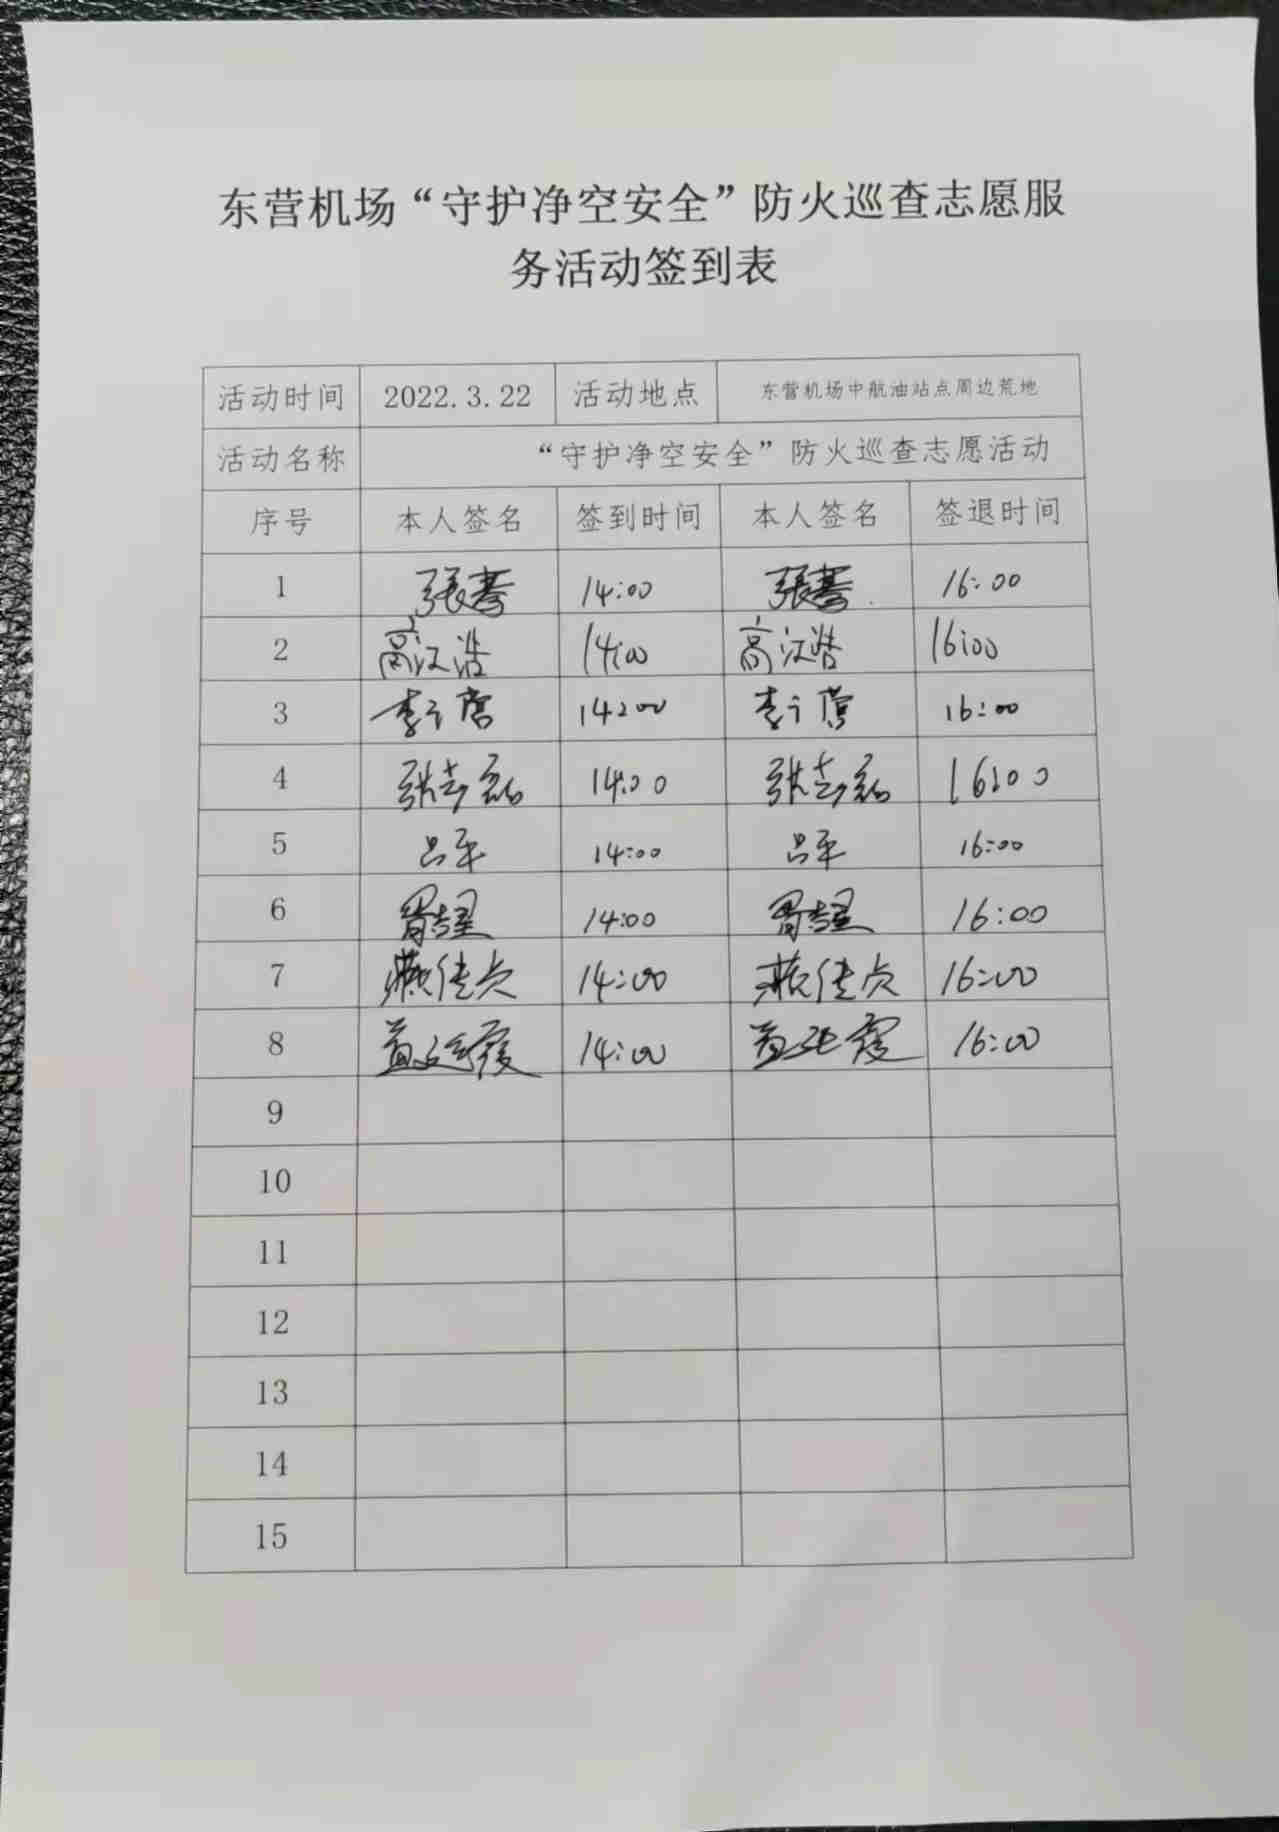 东营机场“守护净空安全”防火巡查志愿服
务活动签到表
活动时间 2022.3.22 活动地点 东营机场中航油站点周边荒地
活动名称 “守护净空安全”防火巡查志愿活动
序号 本人签名 签到时间 本人签名 签退时间
1 14:00 16:00
2 高汉浩 14:00 高汉浩 16:00
3 14:00 16:00
4 张志磊 14:00 张志磊 16:00
5 吕平 14:00 吕平 16:00
6 14:00 16:00
7 14:00 16:00
8 14:00 16:00
9
10
11
12
13
14
15